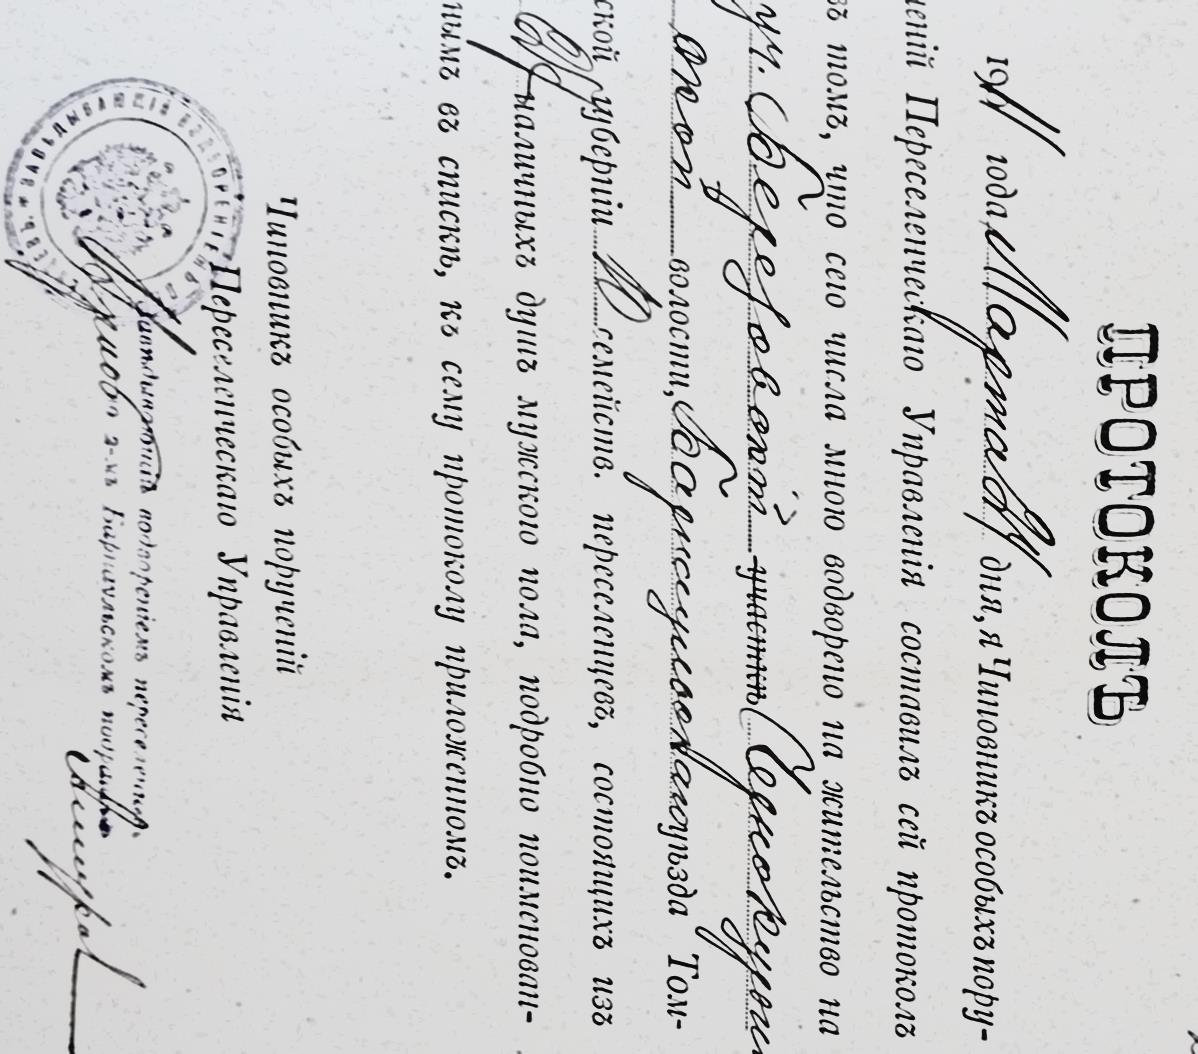 ПРОТОКОЛЪ
1911 года, Марта 24 дня, я Чиновникъ особыхъ пору-
ченій Переселенческаго Управленія составилъ сей протоколъ
въ томъ, что сего числа мною водворено на жительство на
уч. Береговой участкѣ
волости, Барнаульскаго уѣзда Том-
ской губерніи 10 семейств. переселенцевъ, состоящихъ изъ
наличныхъ душъ мужского пола, подробно поименован-
нымъ въ спискѣ, къ сему протоколу приложенномъ.
Чиновникъ особыхъ порученій
Переселенческаго Управленія
Завѣдывающій водвореніемъ переселен-
2-мъ Барнаульскомъ
ЗАВѢДЫВАЮЩІЙ ВОДВОРЕНІЕМЪ